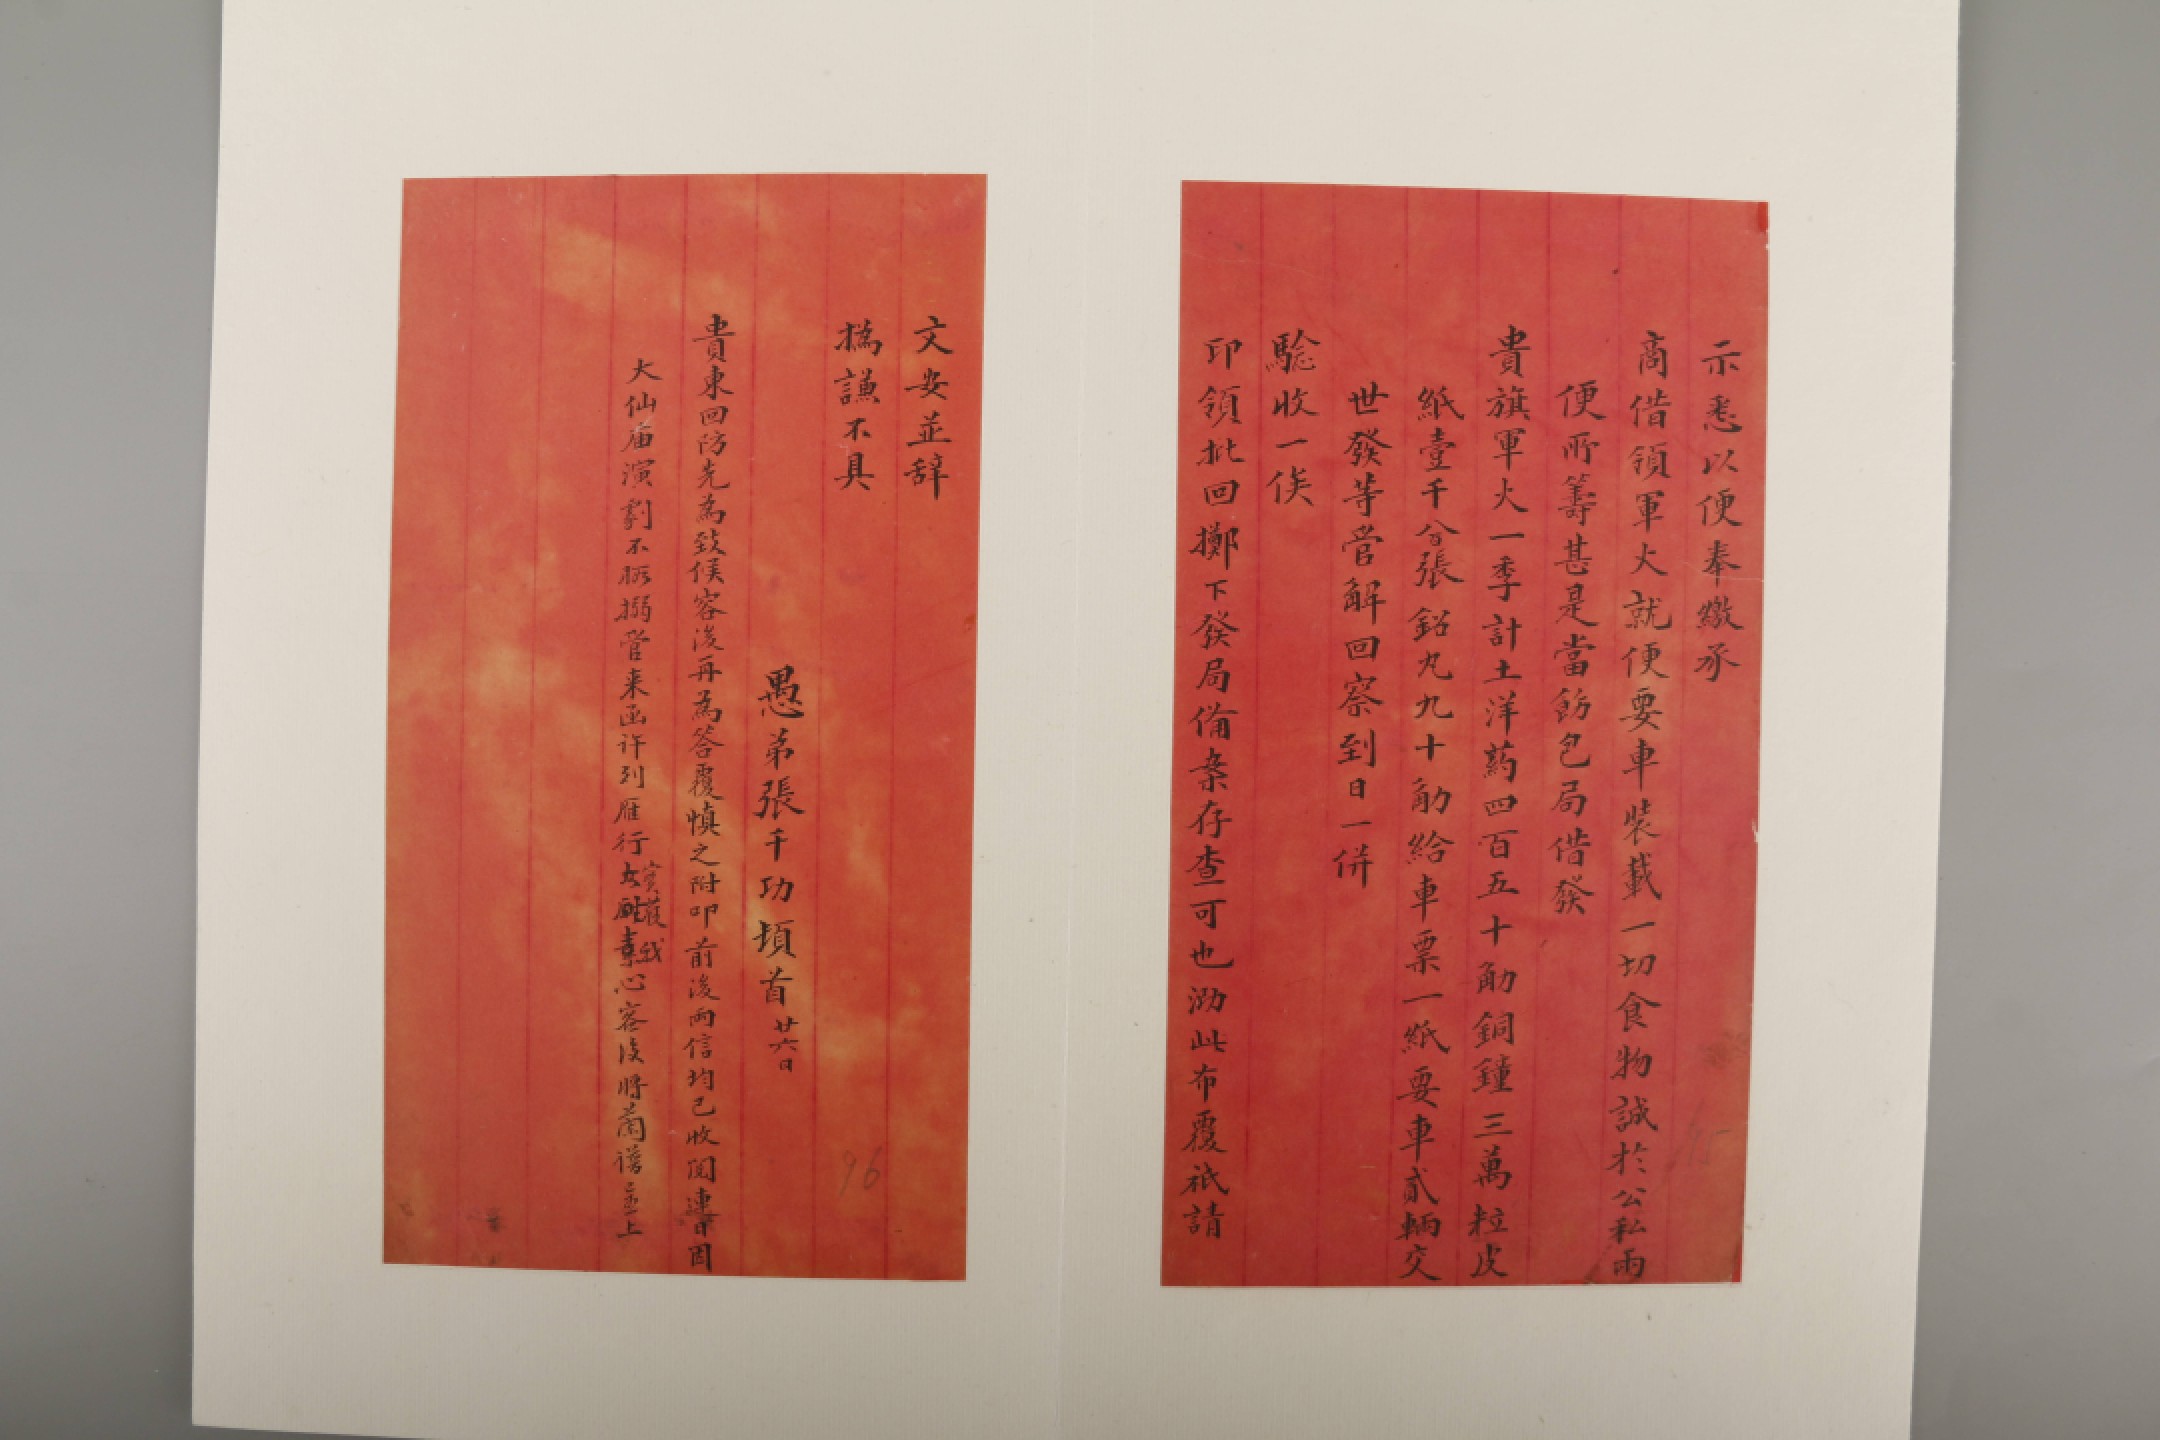 示悉以便奉繳承
商借領軍火就便要車裝載一切食物誠於公私兩
便所籌甚是當飭包局借發
貴旗軍火一季計土洋藥四百五十觔銅鐘三萬粒皮
紙壹千分張鉛丸九十觔給車票一紙要車貳輛交
世發等營解回察到日一併
驗收一俟
印領批回擲下發局備案存查可也泐此布覆祇請
95
文安並辞
撝謙不具
愚弟張千功頓首廿六日
貴東回防先為致候容後再為答覆慎之附叩前後兩信均已收閱連日因
大仙庙演劇不暇搦管来函许列雁行實獲我心容後將蘭譜呈上
96